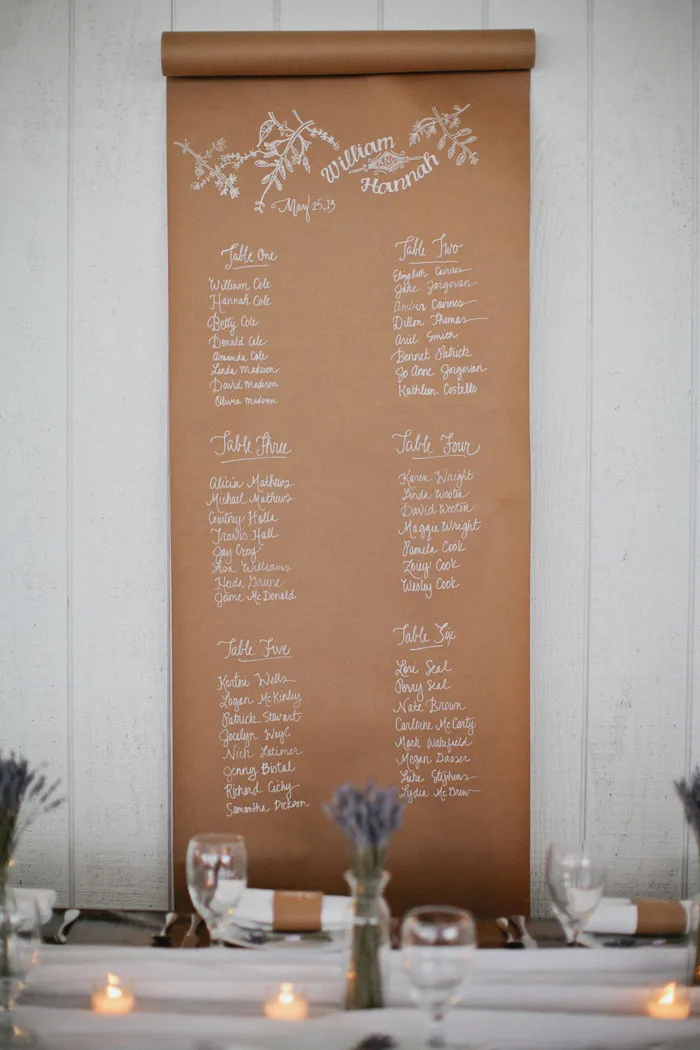 William
AND
Hannah
May 25, 13
Table One
William Cole
Hannah Cole
Betty Cole
Donald Cole
Amanda Cole
Linda Madison
David Madison
Olivia Madison
Table Two
Elizabeth Cairnes
Jake Jorgovan
Amber Cairnes
Dillon Thomas
Ariel Smith
Bennet Patrick
Jo Anne Jorgovan
Kathleen Costello
Table Three
Alicia Mathews
Michael Mathews
Courtney Holla
Travis Hall
Jay Croy
Williams
Heide Greene
Jame McDonald
Table Four
Karen Wright
Linda Wooten
David Wooten
Maggie Wright
Pamela Cook
Zoey Cook
Wesley Cook
Table Five
Kortni Wells
Logan McKinley
Patrick Stewart
Jocelyn
Nick Latimer
Jenny Bistal
Richard Cichy
Samantha Dickson
Table Six
Lori Seal
Perry Seal
Nate Brown
Carleine McCarty
Mark Wakefield
Megan Dasser
Luke Stephens
Lydia McBrew